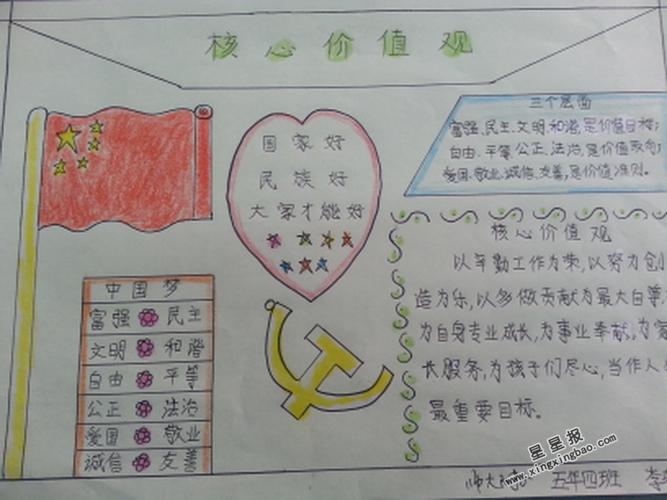 核心价值观
国家好
民族好
大家才能好
三个层面
富强、民主、文明、和谐,是价值目标;
自由、平等、公正、法治,是价值取向
爱国、敬业、诚信、友善,是价值准则。
中国梦
富强 民主
文明 和谐
自由 平等
公正 法治
爱国 敬业
诚信 友善
核心价值观
以辛勤工作为荣,以努力创
造为乐,以多做贡献为最大自
为自身专业成长,为事业奉献,为
长服务,为孩子们尽心,当作人
最重要目标。
五年四班
星星报
www.xingxingbao.com